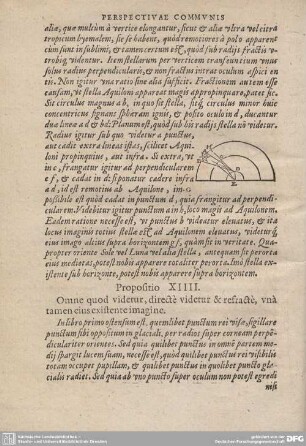 PERSPECTIVAE COMMVNIS
aliæ, quæ multùm à vertice elongantur, sicut & aliæ vltra vel citrà
tropicum hyemalem, sic se habent, quòd remotiores à polo apparent
cùm sunt in sublimi, & tamen certum est, quòd sub radijs fractis
videntur. Item stellarum per verticem transeuntium
radius perpendicularis, & non fractus intrat oculum aspici
entis. Non igitur vna ratio sine alia sufficit. Fractionem autem esse
causam, vt stella Aquiloni appareat magis appropinquare, patet sic.
Sit circulus magnus a b, in quo sit stella, sitq; circulus minor huic
concentricus signans sphæram ignis, & posito oculo in d, ducantur
duæ lineæ a d & b d. Planum est, quòd sub his radijs stella non videtur.
Radius igitur sub quo videtur a punctus,
aut cadit extra lineas istas, scilicet Aqui-
loni propinquius, aut infra. Si extra, vt
in c, frangitur igitur ad perpendicularem
e f, & cadat in d, si ponatur cadere infra
a d, id est remotius ab Aquilone, im-
possibile est quòd cadat in punctum d, quia frangitur ad perpendi-
cularem. Videbitur igitur punctum a in h, loco magis ad Aquilonem.
Eadem ratione necesse est, vt punctus b videatur eleuatus, & ita
locus imaginis totius stellæ est ad Aquilonem eleuatus, videturq;
eius imago altius supra horizontem g f, quàm sit in veritate. Qua-
propter oriente Sole vel Luna vel alia stella, antequam sit per orta
eius medietas, potest nobis apparere totaliter per orta. Imò stella ex-
istente sub horizonte, potest nobis apparere supra horizontem.
Propositio XIIII.
Omne quod videtur, directè videtur & refractè, vnà
tamen eius existente imagine.
In libro primo ostensum est, quemlibet punctum rei visæ, sigillare
punctum sibi oppositum in glaciali, per radios super corneam perpē-
diculariter orientes. Sed quia quilibet punctus in omnē partem me-
dij spargit lucem suam, necesse est, quòd quilibet punctus rei visibilis
totam occupet pupillam, & quilibet punctus in quolibet puncto gla-
cialis radiet. Sed quia ab vno puncto super oculum non potest egredi
nisi